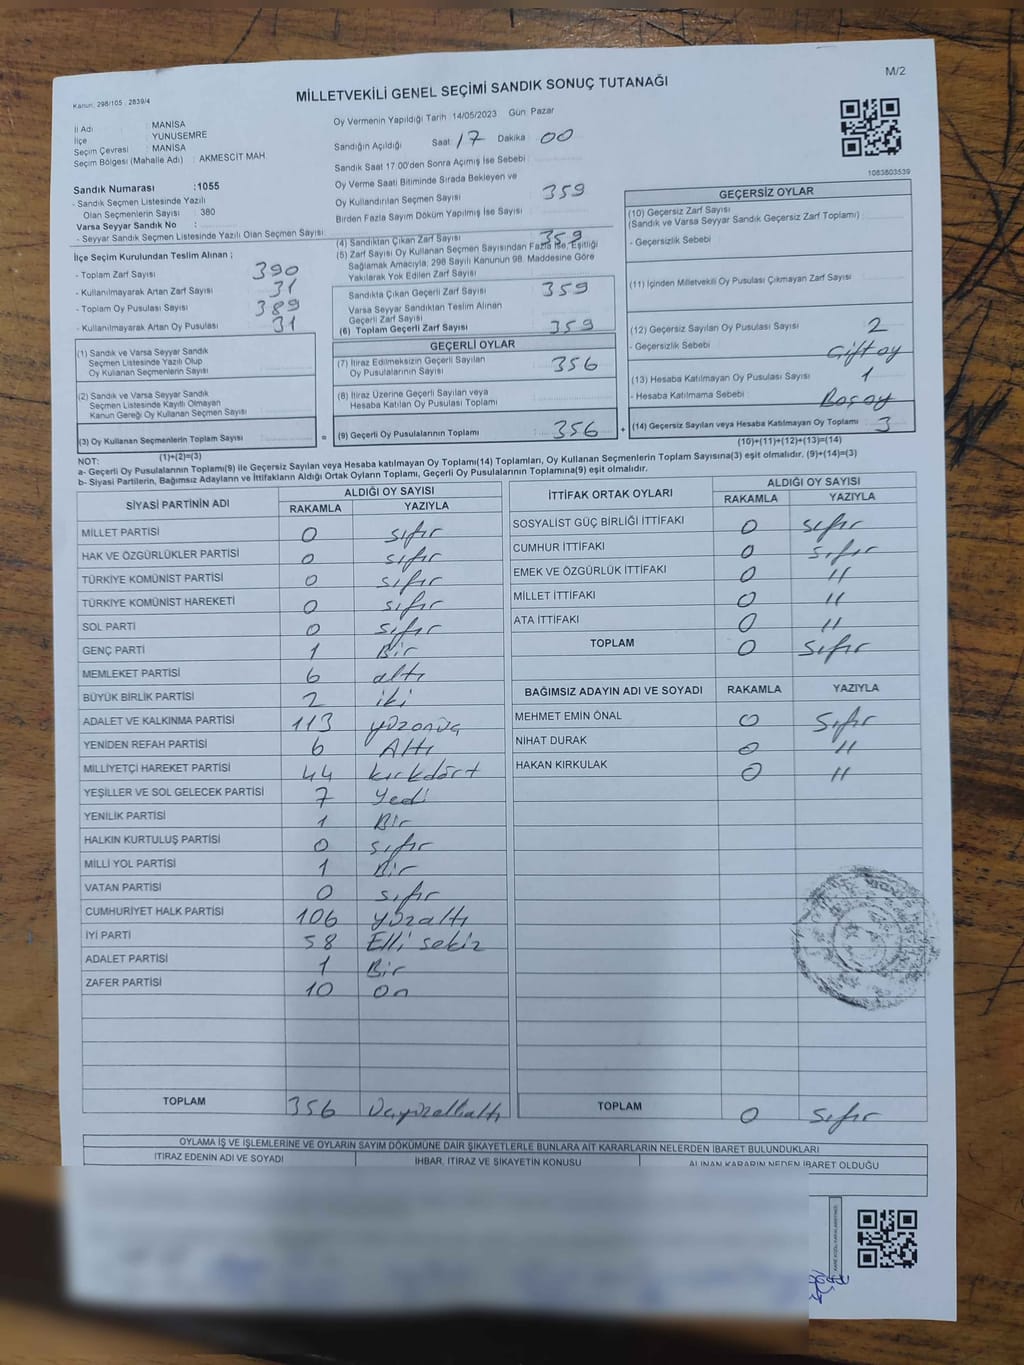 M/2
Kanun: 298/105 - 2839/4
MİLLETVEKİLİ GENEL SEÇİMİ SANDIK SONUÇ TUTANAĞI
İl Adı : MANİSA
İlçe : YUNUSEMRE
Seçim Çevresi : MANİSA
Seçim Bölgesi (Mahalle Adı) : AKMESCİT MAH.
Sandık Numarası :1055
- Sandık Seçmen Listesinde Yazılı
Olan Seçmenlerin Sayısı : 380
Varsa Seyyar Sandık No :
- Seyyar Sandık Seçmen Listesinde Yazılı Olan Seçmen Sayısı:
Oy Vermenin Yapıldığı Tarih 14/05/2023 Gün Pazar
Sandığın Açıldığı Saat 17 Dakika 00
Sandık Saat 17.00'den Sonra Açımış İse Sebebi :
Oy Verme Saati Bitiminde Sırada Bekleyen ve
Oy Kullandırılan Seçmen Sayısı : 359
Birden Fazla Sayım Döküm Yapılmış İse Sayısı :
1083803539
İlçe Seçim Kurulundan Teslim Alınan ;
- Toplam Zarf Sayısı : 390
- Kullanılmayarak Artan Zarf Sayısı : 31
- Toplam Oy Pusulası Sayısı : 389
- Kullanılmayarak Artan Oy Pusulası : 31
(1) Sandık ve Varsa Seyyar Sandık
Seçmen Listesinde Yazılı Olup
Oy Kullanan Seçmenlerin Sayısı :
(2) Sandık ve Varsa Seyyar Sandık
Seçmen Listesinde Kayıtlı Olmayan
Kanun Gereği Oy Kullanan Seçmen Sayısı :
(3) Oy Kullanan Seçmenlerin Toplam Sayısı :
(1)+(2)=(3)
(4) Sandıktan Çıkan Zarf Sayısı : 359
(5) Zarf Sayısı Oy Kullanan Seçmen Sayısından Fazla İse, Eşitliği
Sağlamak Amacıyla, 298 Sayılı Kanunun 98. Maddesine Göre
Yakılarak Yok Edilen Zarf Sayısı :
Sandıkta Çıkan Geçerli Zarf Sayısı : 359
Varsa Seyyar Sandıktan Teslim Alınan
Geçerli Zarf Sayısı :
(6) Toplam Geçerli Zarf Sayısı : 359
GEÇERLİ OYLAR
(7) İtiraz Edilmeksizin Geçerli Sayılan
Oy Pusulalarının Sayısı : 356
(8) İtiraz Üzerine Geçerli Sayılan veya
Hesaba Katılan Oy Pusulası Toplamı :
= (9) Geçerli Oy Pusulalarının Toplamı : 356 +
GEÇERSİZ OYLAR
(10) Geçersiz Zarf Sayısı
(Sandık ve Varsa Seyyar Sandık Geçersiz Zarf Toplamı) :
- Geçersizlik Sebebi :
(11) İçinden Milletvekili Oy Pusulası Çıkmayan Zarf Sayısı :
(12) Geçersiz Sayılan Oy Pusulası Sayısı : 2
- Geçersizlik Sebebi : Çift oy
(13) Hesaba Katılmayan Oy Pusulası Sayısı : 1
- Hesaba Katılmama Sebebi : Boş oy
(14) Geçersiz Sayılan veya Hesaba Katılmayan Oy Toplamı : 3
(10)+(11)+(12)+(13)=(14)
NOT:
a- Geçerli Oy Pusulalarının Toplamı(9) ile Geçersiz Sayılan veya Hesaba katılmayan Oy Toplamı(14) Toplamları, Oy Kullanan Seçmenlerin Toplam Sayısına(3) eşit olmalıdır. (9)+(14)=(3)
b- Siyasi Partilerin, Bağımsız Adayların ve İttifakların Aldığı Ortak Oyların Toplamı, Geçerli Oy Pusulalarının Toplamına(9) eşit olmalıdır.
SİYASİ PARTİNİN ADI ALDIĞI OY SAYISI
RAKAMLA YAZIYLA
MİLLET PARTİSİ 0 sıfır
HAK VE ÖZGÜRLÜKLER PARTİSİ 0 sıfır
TÜRKİYE KOMÜNİST PARTİSİ 0 sıfır
TÜRKİYE KOMÜNİST HAREKETİ 0 sıfır
SOL PARTİ 0 sıfır
GENÇ PARTİ 1 Bir
MEMLEKET PARTİSİ 6 altı
BÜYÜK BİRLİK PARTİSİ 2 iki
ADALET VE KALKINMA PARTİSİ 113 yüzonüç
YENİDEN REFAH PARTİSİ 6 Altı
MİLLİYETÇİ HAREKET PARTİSİ 44 kırkdört
YEŞİLLER VE SOL GELECEK PARTİSİ 7 Yedi
YENİLİK PARTİSİ 1 Bir
HALKIN KURTULUŞ PARTİSİ 0 sıfır
MİLLİ YOL PARTİSİ 1 Bir
VATAN PARTİSİ 0 sıfır
CUMHURİYET HALK PARTİSİ 106 yüzaltı
İYİ PARTİ 58 Elli sekiz
ADALET PARTİSİ 1 Bir
ZAFER PARTİSİ 10 on
TOPLAM 356 Üçyüzellialtı
İTTİFAK ORTAK OYLARI ALDIĞI OY SAYISI
RAKAMLA YAZIYLA
SOSYALİST GÜÇ BİRLİĞİ İTTİFAKI 0 sıfır
CUMHUR İTTİFAKI 0 sıfır
EMEK VE ÖZGÜRLÜK İTTİFAKI 0 "
MİLLET İTTİFAKI 0 "
ATA İTTİFAKI 0 "
TOPLAM 0 sıfır
BAĞIMSIZ ADAYIN ADI VE SOYADI RAKAMLA YAZIYLA
MEHMET EMİN ÖNAL 0 Sıfır
NİHAT DURAK 0 "
HAKAN KIRKULAK 0 "
TOPLAM 0 sıfır
OYLAMA İŞ VE İŞLEMLERİNE VE OYLARIN SAYIM DÖKÜMÜNE DAİR ŞİKAYETLERLE BUNLARA AİT KARARLARIN NELERDEN İBARET BULUNDUKLARI
İTİRAZ EDENİN ADI VE SOYADI İHBAR, İTİRAZ VE ŞİKAYETİN KONUSU ALINAN KARARIN NEDEN İBARET OLDUĞU